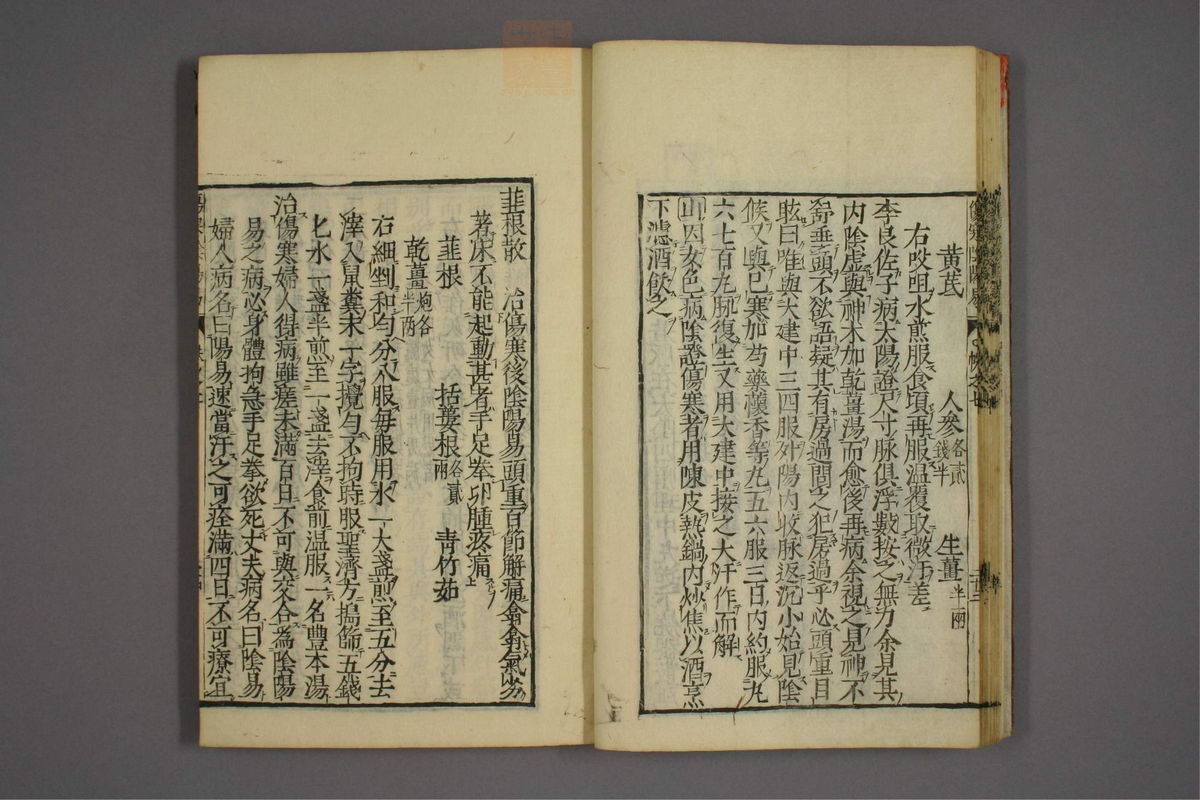 黄芪　人參各貳錢半　生薑半兩
右㕮咀水煎服食頃再服温覆取微汗差
李良佐子病太陽證尺寸脉俱浮數按之無力余見其
内陰虚與神木加乾薑湯而愈後再病余視之見神不
舒垂頭不欲語疑其有房過問之犯房過乎必頭重目
眩曰唯與大建中三四服外陽内收脉返沉小始見陰
候又與巳寒加芍藥茴香等丸五六服三日内約服丸
六七百丸脈復生又用大建中接之大汗作而解
山因女色病陰證傷寒者用陳皮熱鍋内炒焦以酒烹
下濾酒飲之
韮根散　治傷寒後陰陽易頭重百節解痛翕翕氣劣
著床不能起動甚者手足拳卵腫疼痛
韮根　括蔞根各貳兩　青竹茹
乾薑炮各半兩
右細剉和匀分八服每服用水一大盞煎至五分去
滓入鼠糞末一字攪勻不拘時服聖濟方搗篩五錢
匕水一盞半煎至一盞去滓食前温服一名豐本湯
治傷寒婦人得病雖瘥未滿百日不可與交合為陰陽
易之病必身體拘急手足拳欲死丈夫病名曰陰易
婦人病名曰陽易速當汗之可痊滿四日不可療宜